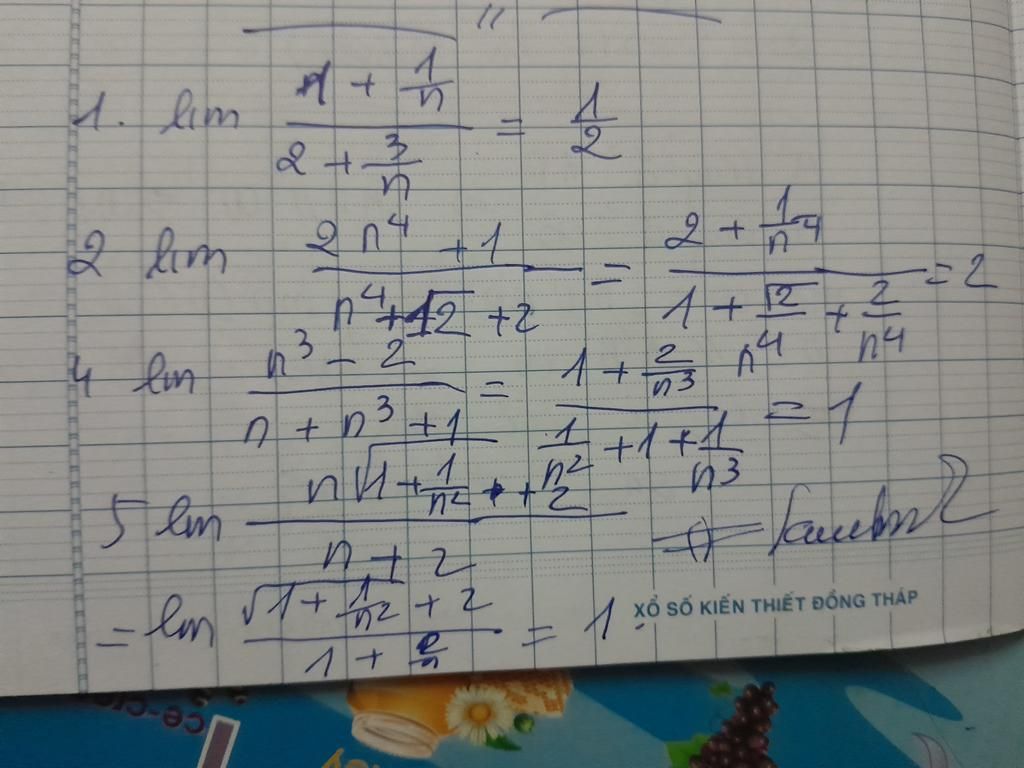 1. lim (1 + 1/n)/(2 + 3/n) = 1/2
2 lim (2n⁴ + 1)/(n⁴ + √2 + 2) = (2 + 1/n⁴)/(1 + √2/n⁴ + 2/n⁴) = 2
4 lim (n³ - 2)/(n + n³ + 1) = (1 + 2/n³)/(1/n² + 1 + 1/n³) = 1
5 lim (n√(1 + 1/n²) + 2)/(n + 2)
= lim (√(1 + 1/n²) + 2)/(1 + 2/n) = 1.
XỔ SỐ KIẾN THIẾT ĐỒNG THÁP